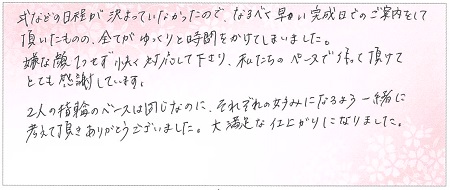 式などの日程が決まっていなかったので、なるべく早い完成日でのご案内をして
頂いたものの、全てがゆっくりと時間をかけてしまいました。
嫌な顔1つせず快く対応して下さり、私たちのペースで作って頂けて
とても感謝しています。
2人の指輪のベースは同じなのに、それぞれの好みになるよう一緒に
考えて頂きありがとうございました。大満足な仕上がりになりました。